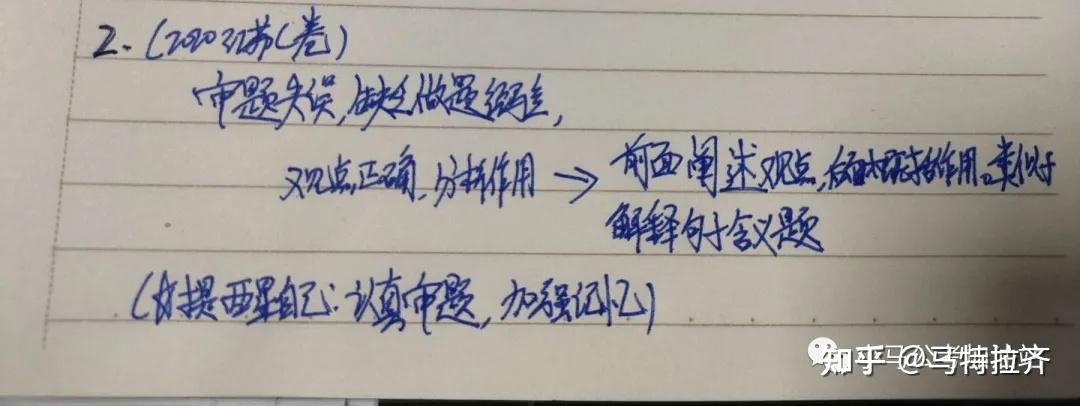 2.(2020江苏C卷)
审题失误,缺乏做题经验,
观点正确,分析作用 → 前面阐述观点,后面概括作用。类似于
解释句子含义题
(提醒自己:认真审题,加强记忆)
知乎 @马特拉齐